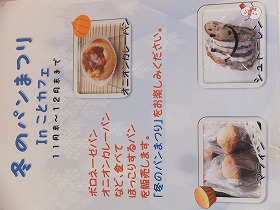 冬のパンまつり
Inことカフェ
11月末～12月末まで
オニオンカレーパン
シュトーレン
ボロネーゼパン
オニオンカレーパン
など、食べて
ほっこりするパン
を販売します。
「冬のパンまつり」をお楽しみください。